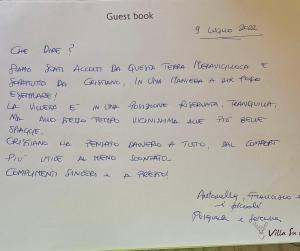 Guest book
9 LUGLIO 2022
CHE DIRE?
SIAMO STATI ACCOLTI DA QUESTA TERRA MERAVIGLIOSA E
SOPRATUTTO DA CRISTIANO, IN UNA MANIERA A DIR POCO
ESEMPLARE!
LA VILLETTA E' IN UNA POSIZIONE RISERVATA, TRANQUILLA,
MA ALLO STESSO TEMPO VICINISSIMA ALLE PIÙ BELLE
SPIAGGE.
CRISTIANO HA PENSATO DAVVERO A TUTTO, DAL COMFORT
PIU' UTILE AL MENO SCONTATO.
COMPLIMENTI SINCERI E A PRESTO!
Antonella, Francesco e
i piccoli
Pasquale e
Villa